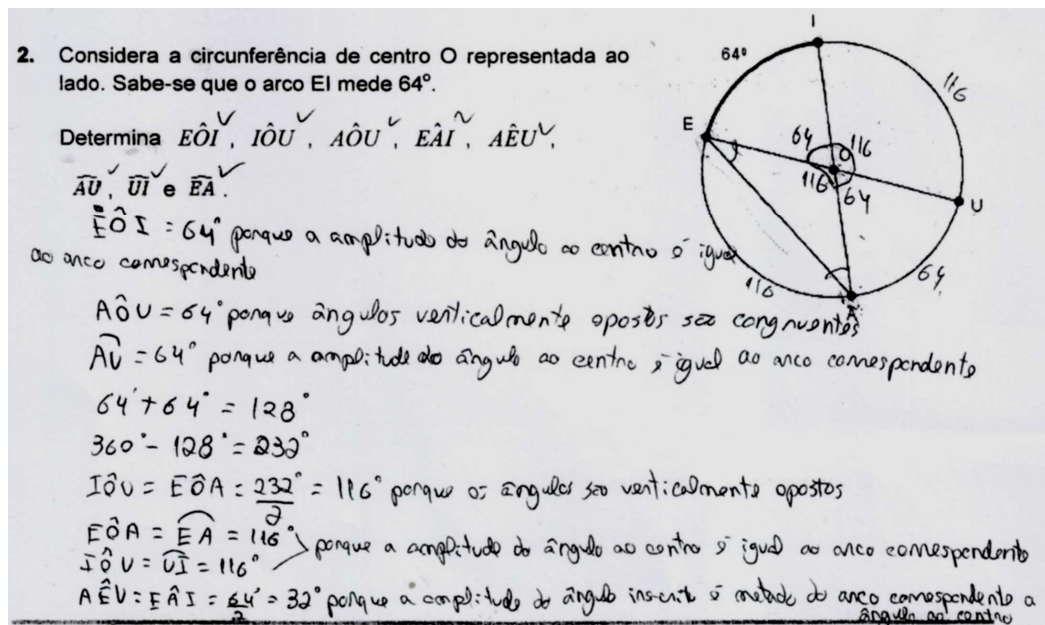 2. Considera a circunferência de centro O representada ao
lado. Sabe-se que o arco EI mede 64º.
Determina EÔI, IÔU, AÔU, EÂI, AÊU,
A͡U, U͡I e E͡A.
I
64º
116
E
64 116
O
116 64
U
116
64
A
EÔI = 64° porque a amplitude do ângulo ao centro é igual
ao arco correspondente
AÔU = 64° porque ângulos verticalmente opostos são congruentes
A͡U = 64° porque a amplitude do ângulo ao centro é igual ao arco correspondente
64° + 64° = 128°
360° - 128° = 232°
IÔU = EÔA = 232°/2 = 116° porque os ângulos são verticalmente opostos
EÔA = E͡A = 116°
IÔU = U͡I = 116°
porque a amplitude do ângulo ao centro é igual ao arco correspondente
AÊU = EÂI = 64°/2 = 32° porque a amplitude do ângulo inscrito é metade do arco correspondente a
ângulo ao centro